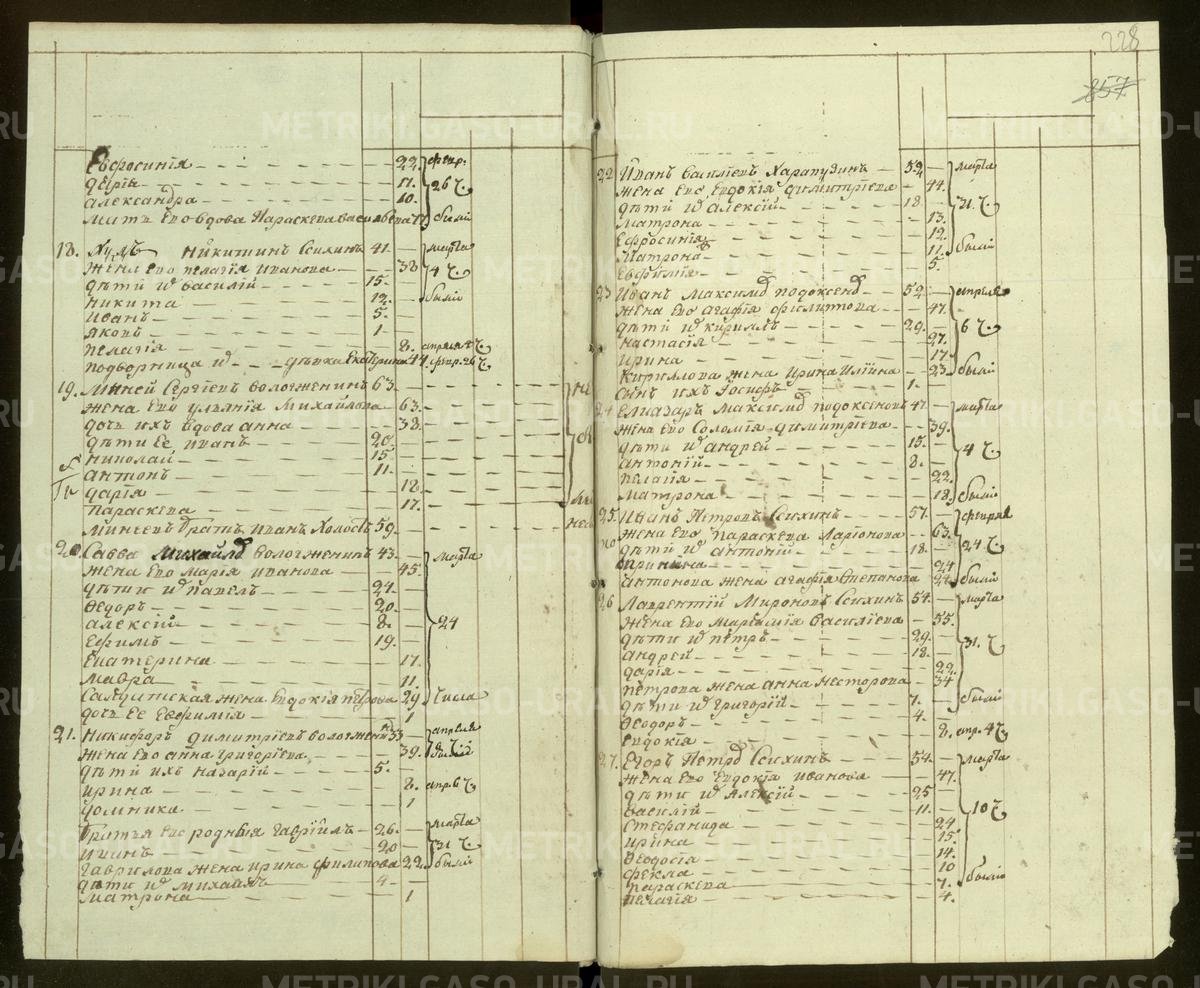 228
857
Евфросинія 22. февр:
Дарія 11. 26 ч.
Александра 10.
Мать его вдова Параскева Васильева были
18. Никитинъ 41. марта
Жена его Пелагія Иванова 38 4 ч.
Дѣти их Василій 15.
Никита 12. были
Иванъ 5.
Яковъ 1
Пелагія 8. апреля
Подворница их дѣвка Екатерина 44. февр. 26 ч.
19. Миней Сергѣевъ Вологженинъ 63.
Жена его Ульянія Михайлова 63.
дочь ихъ вдова Анна 38.
Дѣти ее Иванъ 20.
Николай 15
Антонъ 11.
Дарія 18.
Параскева 17.
Минеевъ братъ Иванъ холостъ 59.
20. Савва Михайловъ Вологженинъ 43. марта
Жена его Марія Иванова 45.
Дѣти их Павелъ 24.
Ѳедоръ 20.
Алексій 8. 24
Ефимъ 19.
Екатерина 17.
Мавра 11.
Салдатская жена Евдокія Петрова 29 числа
дочь ее Евфимія 1
21. Никифоръ Димитріевъ Вологженинъ 33 апреля
Жена его Анна Григорьева 39.
Дѣти ихъ Назарій 5.
Ирина 8. апр. 6 ч.
Домника 1
Братья его родныя Гавріилъ 26. марта
Иванъ 20 31 ч.
Гаврилова жена Ирина Филипова 22. были
Дѣти их Михаилъ 4.
Матрона 1
22 Иванъ Василіевъ Харапузинъ 52 марта
Жена его Евдокія Димитріева 44.
Дѣти их Алексій 18 31. ч.
Матрона 13.
Ефросинія 12.
Матрона 11. были
Евфимія 5.
23 Иванъ Максимов Подоксенов 52 апреля
Жена его Агафія Филитова 47.
Дѣти их Кирилъ 29. 6 ч.
Настасія 27.
Ирина 17
Кирилова жена Ирина Илiина 23 были
сынъ ихъ Іосифъ 1.
24 Елиазаръ Максимов Подоксеновъ 47. марта
Жена его Соломія Димитріева 39.
Дѣти их Андрей 15. 4 ч.
Антоній 8.
Пелагія 22.
Матрона 18. были
25. Иванъ Петровъ Ссихинъ 57. февраля
Жена его Параскева Ларіонова 63.
Дѣти их Антоній 18. 24 ч.
Иринина 24
Антонова жена Агафія Степанова 24. были
26 Лаврентій Мироновъ Ссихинъ 54. марта
Жена его Василіева 55.
Дѣти их Петръ 29.
Андрей 18. 31. ч.
Дарія 22.
Петрова жена Анна Несторова 34
Дѣти их Григорій 7. были
Ѳеодоръ 4.
Евдокія 8. апр. 4 ч.
27. Егоръ Петров Ссихинъ 54. марта
Жена его Евдокія Иванова 47.
Дѣти их Алексій 25
Василій 11. 10 ч.
Стефанида 24
Ирина 15.
Ѳеодосія 14.
Фекла 10
Параскева 7. были
Пелагія 4.
METRIKI.GASO-URAL.RU